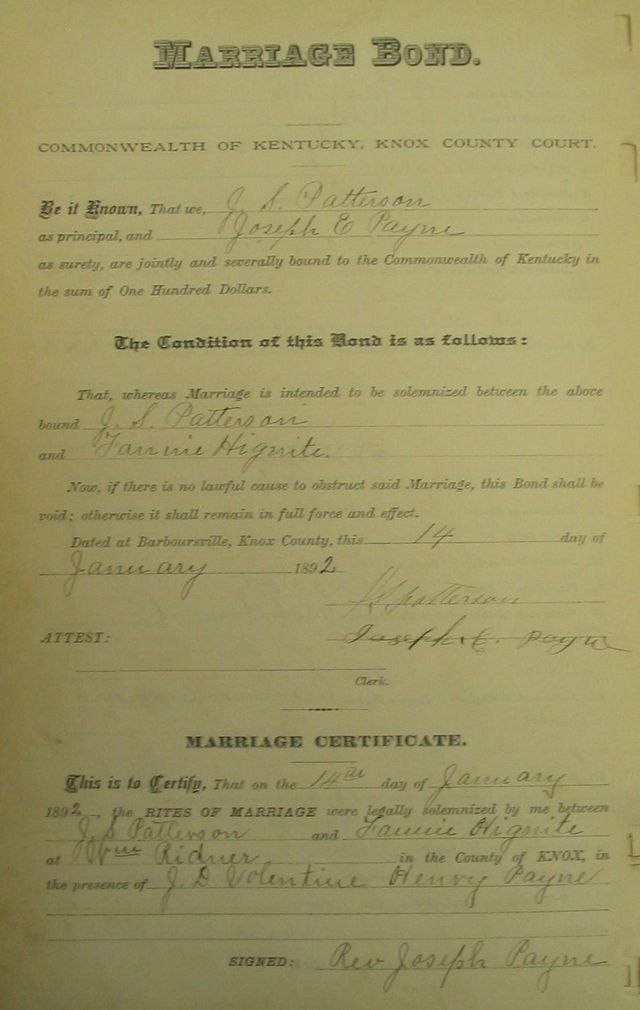 MARRIAGE BOND.
COMMONWEALTH OF KENTUCKY, KNOX COUNTY COURT.
Be it Known, That we, J. S. Patterson
as principal, and Joseph E Payne
as surety, are jointly and severally bound to the Commonwealth of Kentucky in
the sum of One Hundred Dollars.
The Condition of this Bond is as follows:
That, whereas Marriage is intended to be solemnized between the above
bound J. S. Patterson
and Fannie Hignite.
Now, if there is no lawful cause to obstruct said Marriage, this Bond shall be
void; otherwise it shall remain in full force and effect.
Dated at Barboursville, Knox County, this 14 day of
January 1892
J S Patterson
ATTEST: Joseph E. Payne
Clerk.
MARRIAGE CERTIFICATE.
This is to Certify, That on the 14th day of January
1892, the RITES OF MARRIAGE were legally solemnized by me between
J. S Patterson and Fannie Hignite
at Wm Ridner in the County of KNOX, in
the presence of J. D Volentine Henry Payne
SIGNED: Rev Joseph Payne